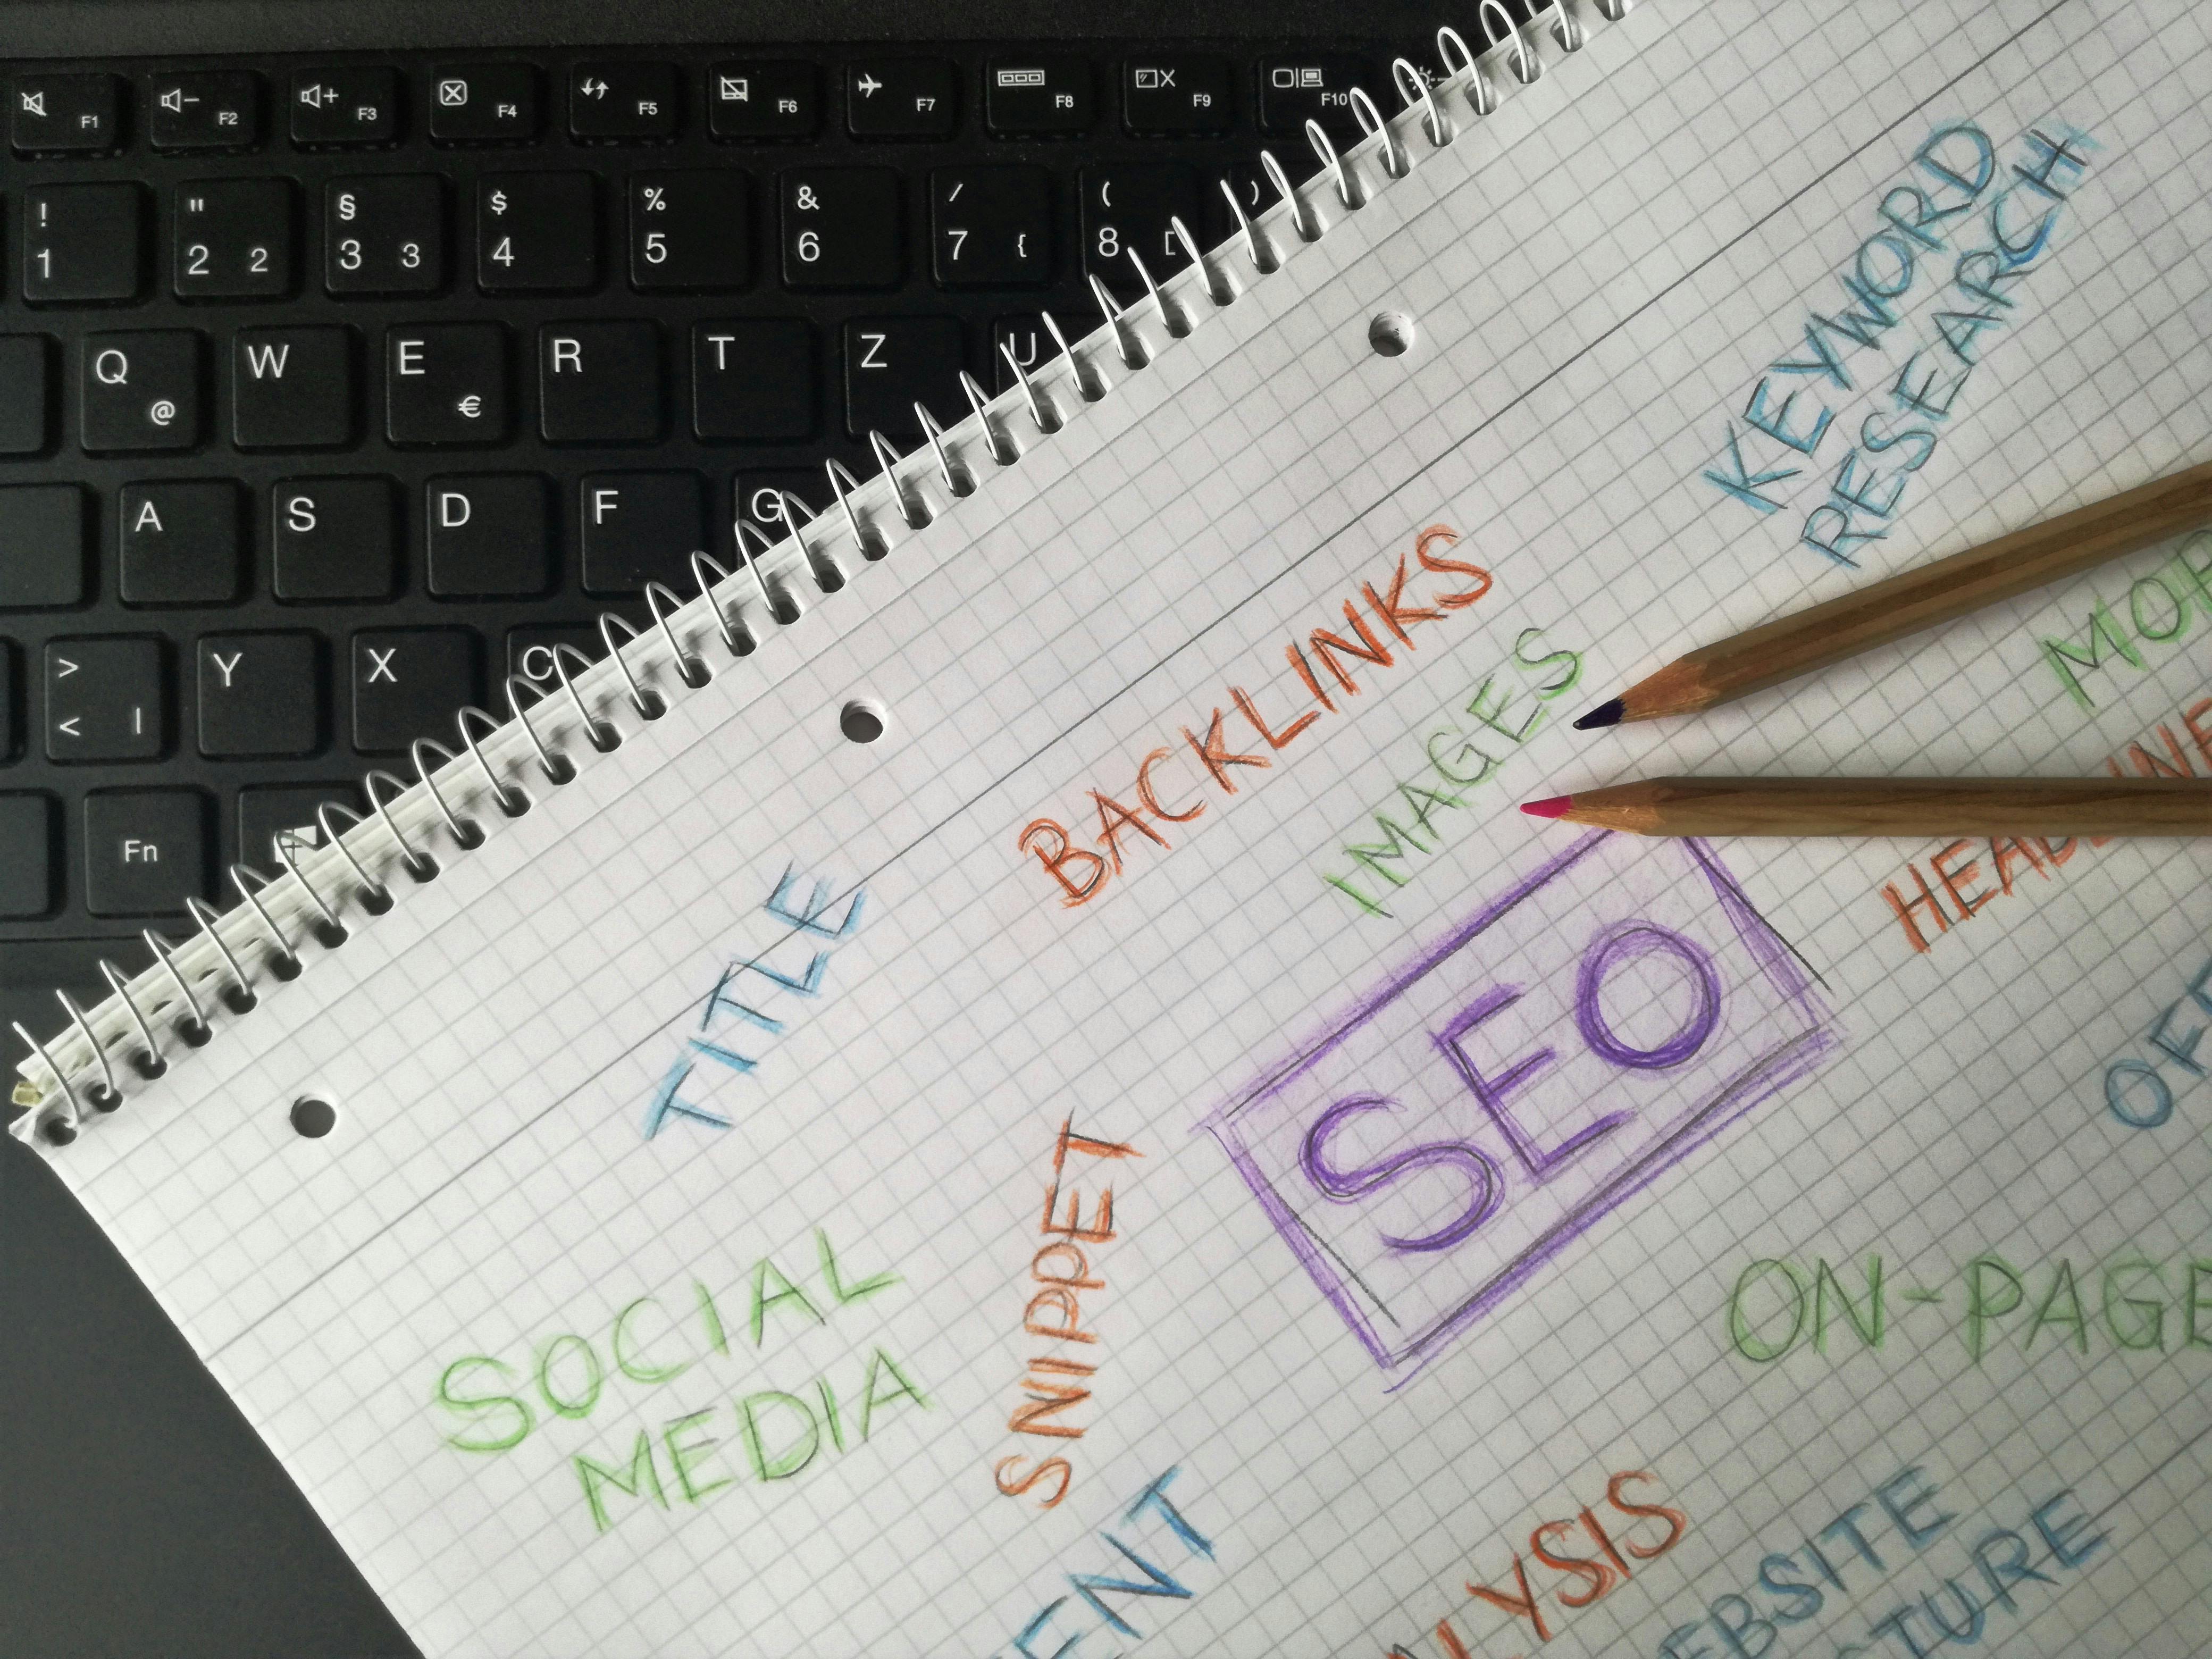 F1 F2 F3 F4 F5 F6 F7 F8 F9 F10
! " § $ % & / ( )
1 2 2 3 3 4 5 6 7 { 8 [
Q @ W E € R T Z U
A S D F G
> < | Y X C
Fn
KEYWORD
RESEARCH
BACKLINKS
IMAGES
MOB
TITLE
HEADLINE
SEO
OFF
SNIPPET
ON-PAGE
SOCIAL
MEDIA
ENT
LYSIS
EBSITE
TURE